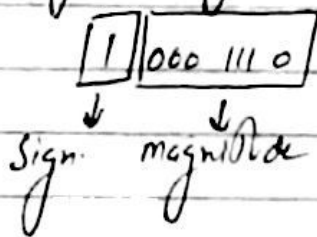 1 000 111 0
Sign. magnitude